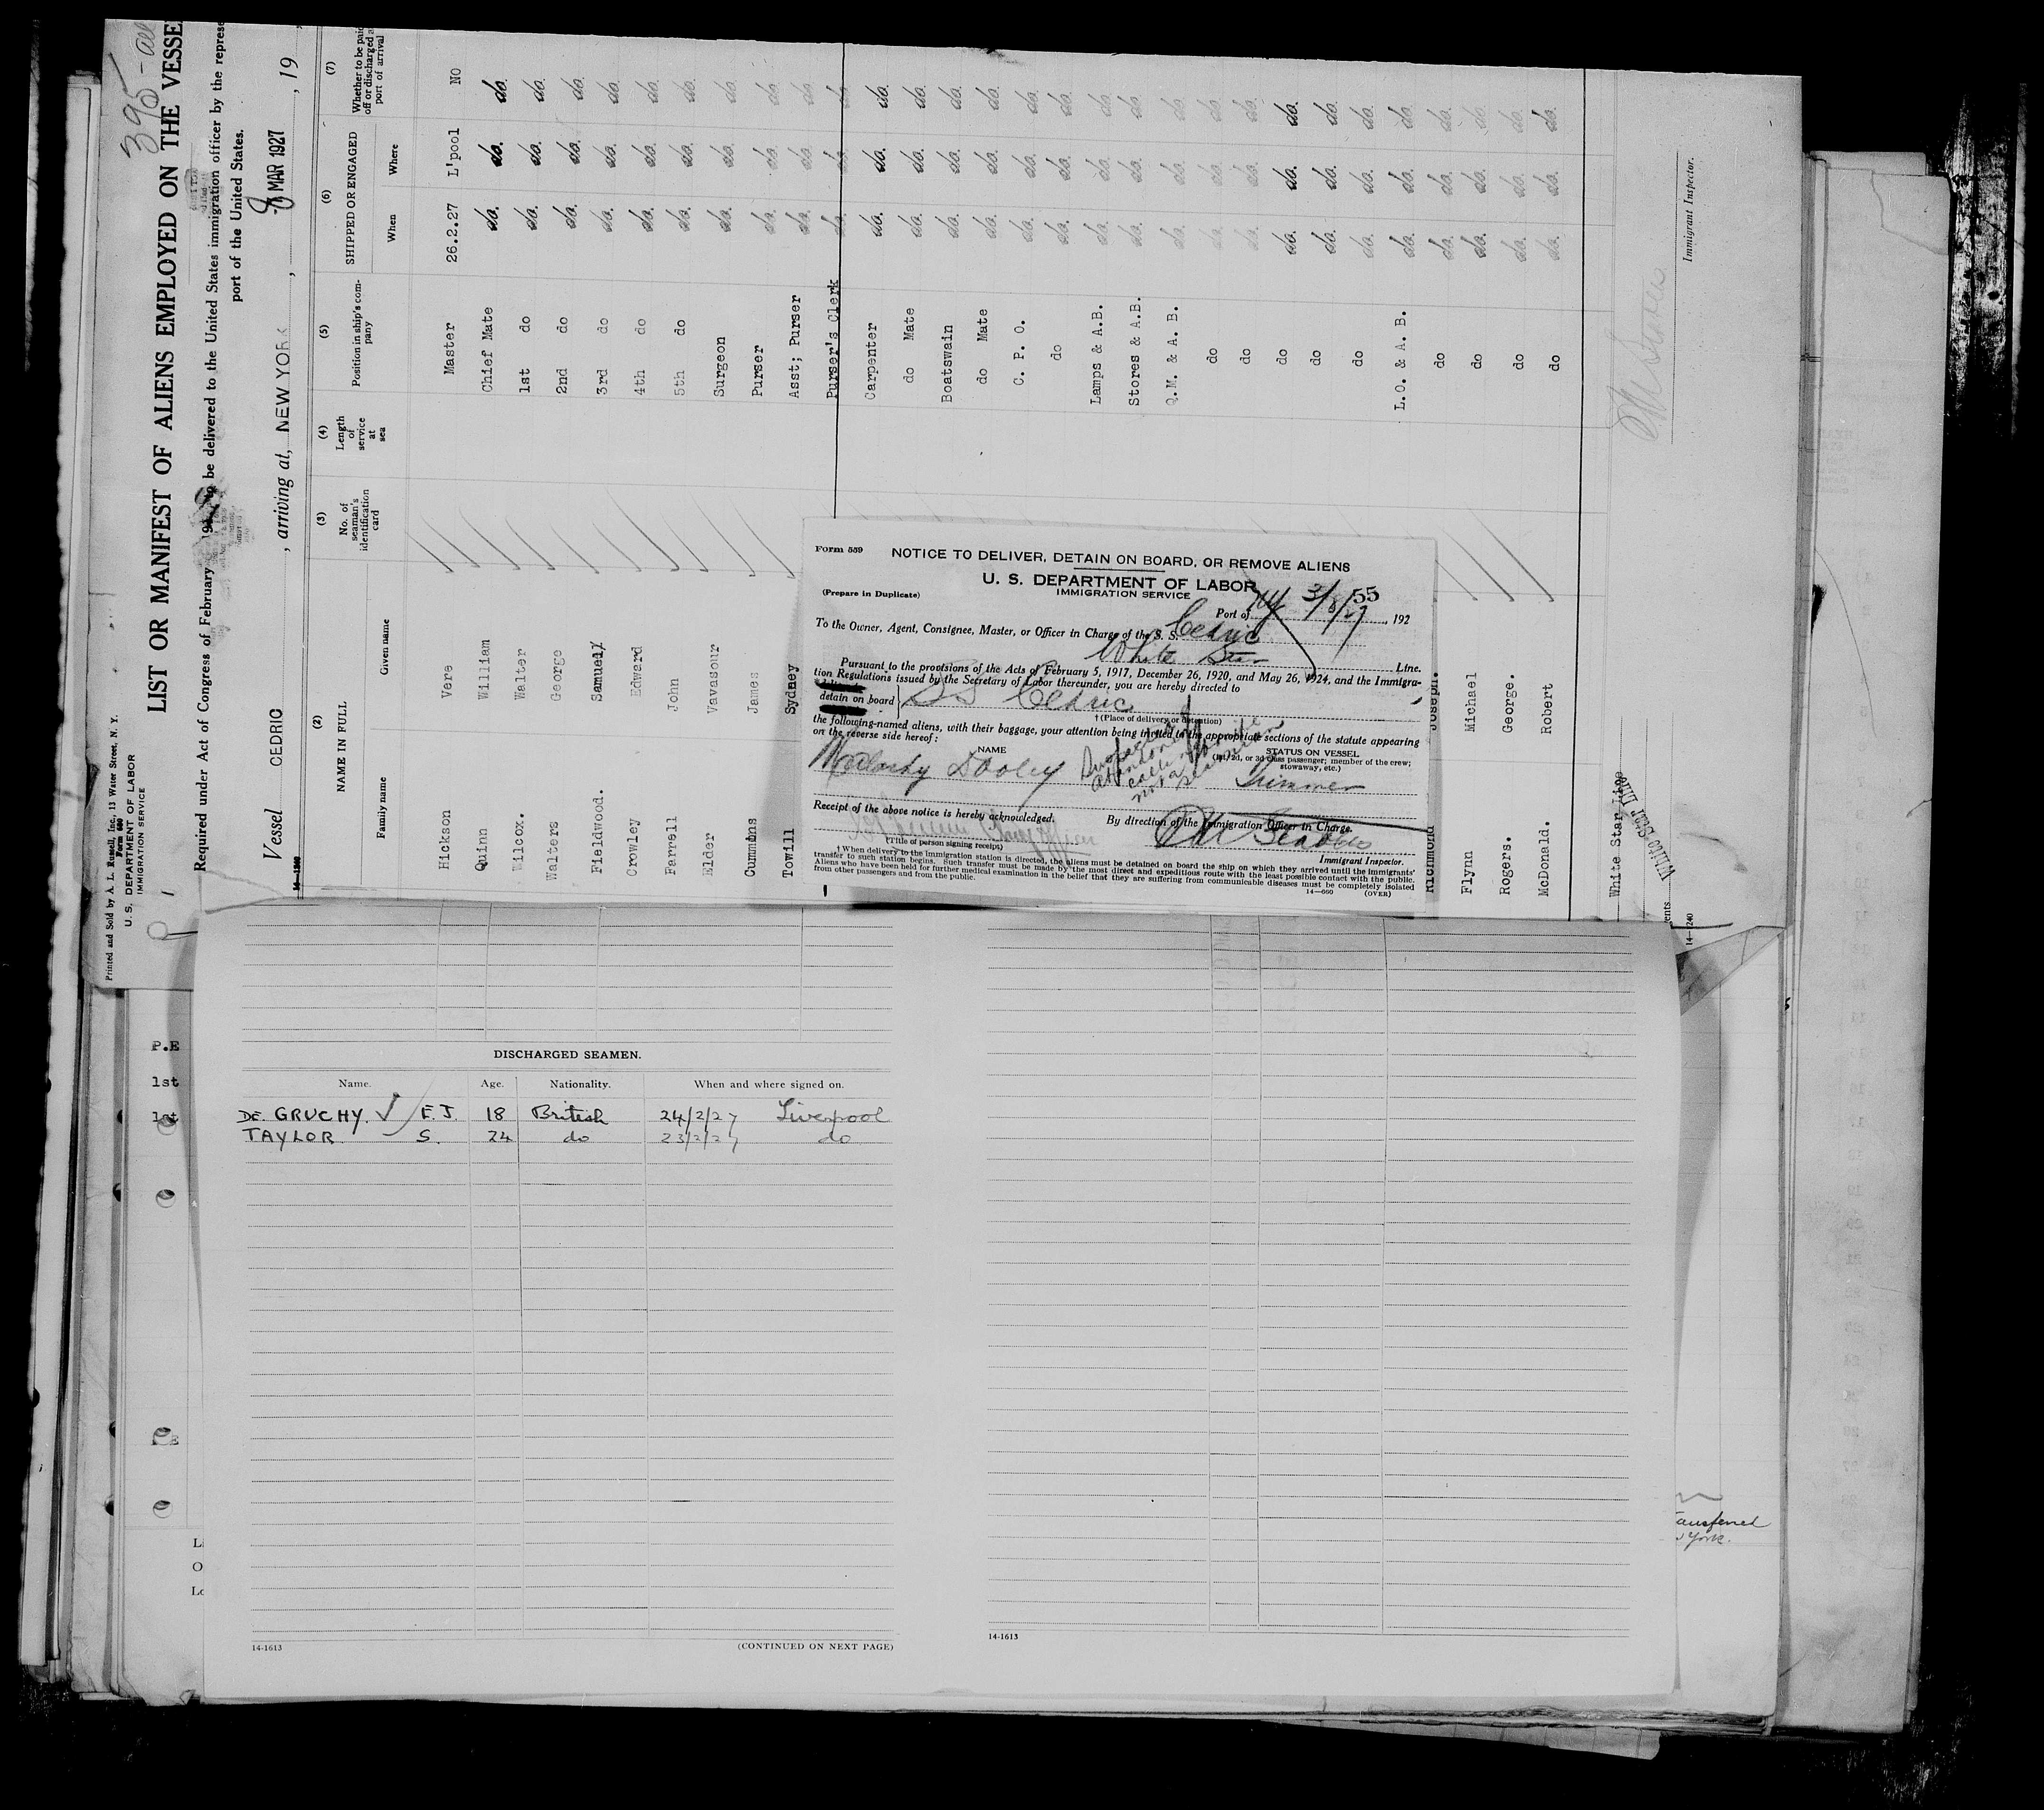 395 - all
LIST OR MANIFEST OF ALIENS EMPLOYED ON THE VESSE
Required under Act of Congress of February be delivered to the United States immigration officer by the represe
port of the United States.
Vessel CEDRIC, arriving at, NEW YORK, 8 MAR 1927, 19
Printed and Sold by A. L. Russell, Inc., 13 Water Street, N. Y.
Form 680
U. S. DEPARTMENT OF LABOR
IMMIGRATION SERVICE
14—1240
(2) (3) (4) (5) (6) (7)
NAME IN FULL
Family name Given name
No. of seaman's identification card
Length of service at sea
Position in ship's company
SHIPPED OR ENGAGED
When Where
Whether to be paid off or discharged at port of arrival
Hickson Vere Master 26.2.27 L'pool NO
Quinn William Chief Mate do. do. do.
Wilcox. Walter 1st do do. do. do.
Walters George 2nd do do. do. do.
Fieldwood. Samuel 3rd do do. do. do.
Crowley Edward 4th do do. do. do.
Farrell John 5th do do. do. do.
Elder Vavasour Surgeon do. do. do.
Cummins James Purser do. do. do.
Towill Sydney Asst; Purser do. do. do.
Purser's Clerk do. do. do.
Carpenter do. do. do.
do Mate do. do. do.
Boatswain do. do. do.
do Mate do. do. do.
C. P. O. do. do. do.
do do. do. do.
Lamps & A.B. do. do. do.
Stores & A.B. do. do. do.
Q.M. & A. B. do. do. do.
do do. do. do.
do do. do. do.
do do. do. do.
do do. do. do.
do do. do. do.
L.O. & A. B. do. do. do.
Richmond Joseph. do do. do. do.
Flynn Michael do do. do. do.
Rogers. George. do do. do. do.
McDonald. Robert do do. do. do.
White Star Line
White Star Line
Immigrant Inspector.
14—1240
Form 559
NOTICE TO DELIVER, DETAIN ON BOARD, OR REMOVE ALIENS
U. S. DEPARTMENT OF LABOR
IMMIGRATION SERVICE
(Prepare in Duplicate)
55
Port of NY 3/8/27, 192
To the Owner, Agent, Consignee, Master, or Officer in Charge of the S. S. Cedric
White Star Line.
Pursuant to the provisions of the Acts of February 5, 1917, December 26, 1920, and May 26, 1924, and the Immigra-
tion Regulations issued by the Secretary of Labor thereunder, you are hereby directed to
detain on board SS Cedric
† (Place of delivery or detention)
the following-named aliens, with their baggage, your attention being invited to the appropriate sections of the statute appearing
on the reverse side hereof:
NAME STATUS ON VESSEL
(1st, 2d, or 3d class passenger; member of the crew;
stowaway, etc.)
Malachy Dooley Trimmer
Receipt of the above notice is hereby acknowledged. By direction of the Immigration Officer in Charge.
(Title of person signing receipt)
Immigrant Inspector.
† When delivery to the immigration station is directed, the aliens must be detained on board the ship on which they arrived until the immigrants'
transfer to such station begins. Such transfer must be made by the most direct and expeditious route with the least possible contact with the public.
Aliens who have been held for further medical examination in the belief that they are suffering from communicable diseases must be completely isolated
from other passengers and from the public.
14—660 (OVER)
P.E
1st
1st
DISCHARGED SEAMEN.
Name. Age. Nationality. When and where signed on.
DE GRUCHY. F. J. 18 British 24/2/27 Liverpool
TAYLOR S. 24 do 23/2/27 do
14-1613 (CONTINUED ON NEXT PAGE)
14-1613